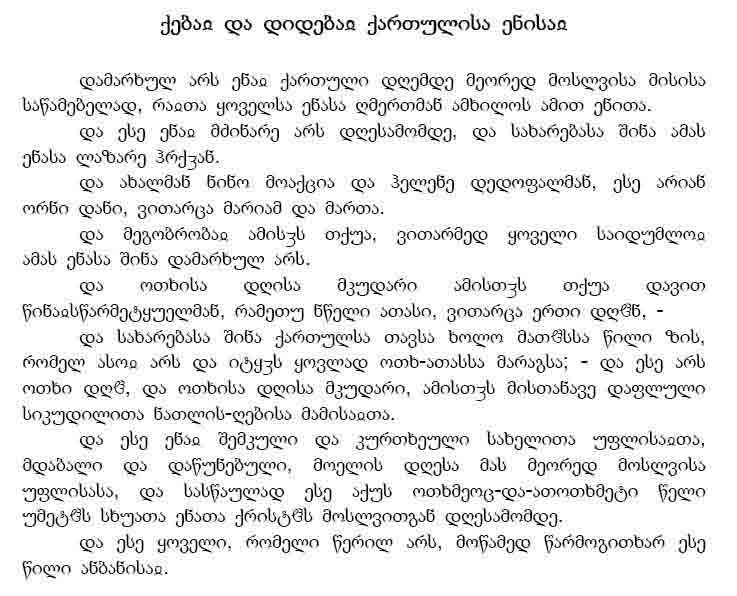 ქებაჲ და დიდებაჲ ქართულისა ენისაჲ
დამარხულ არს ენაჲ ქართული დღემდე მეორედ მოსლვისა მისისა
საწამებელად, რაჲთა ყოველსა ენასა ღმერთმან ამხილოს ამით ენითა.
და ესე ენაჲ მძინარე არს დღესამომდე, და სახარებასა შინა ამას
ენასა ლაზარე ჰრქჳან.
და ახალმან ნინო მოაქცია და ჰელენე დედოფალმან, ესე არიან
ორნი დანი, ვითარცა მარიამ და მართა.
და მეგობრობაჲ ამისჳს თქუა, ვითარმედ ყოველი საიდუმლოჲ
ამას ენასა შინა დამარხულ არს.
და ოთხისა დღისა მკუდარი ამისთჳს თქუა დავით
წინაჲსწარმეტყუელმან, რამეთუ წელი ათასი, ვითარცა ერთი დღჱნ, -
და სახარებასა შინა ქართულსა თავსა ხოლო მათჱსსა წილი ზის,
რომელ ასოჲ არს და იტყჳს ყოვლად ოთხ-ათასსა მარაგსა; - და ესე არს
ოთხი დღჱ, და ოთხისა დღისა მკუდარი, ამისთჳს მისთანავე დაფლული
სიკუდილითა ნათლის-ღებისა მამისაჲთა.
და ესე ენაჲ შემკული და კურთხეული სახელითა უფლისაჲთა,
მდაბალი და დაწუნებული, მოელის დღესა მას მეორედ მოსლვისა
უფლისასა, და სასწაულად ესე აქუს ოთხმეოც-და-ათოთხმეტი წელი
უმეტჱს სხუათა ენათა ქრისტჱს მოსლვითგან დღესამომდე.
და ესე ყოველი, რომელი წერილ არს, მოწამედ წარმოგითხარ ესე
წილი ანბანისაჲ.